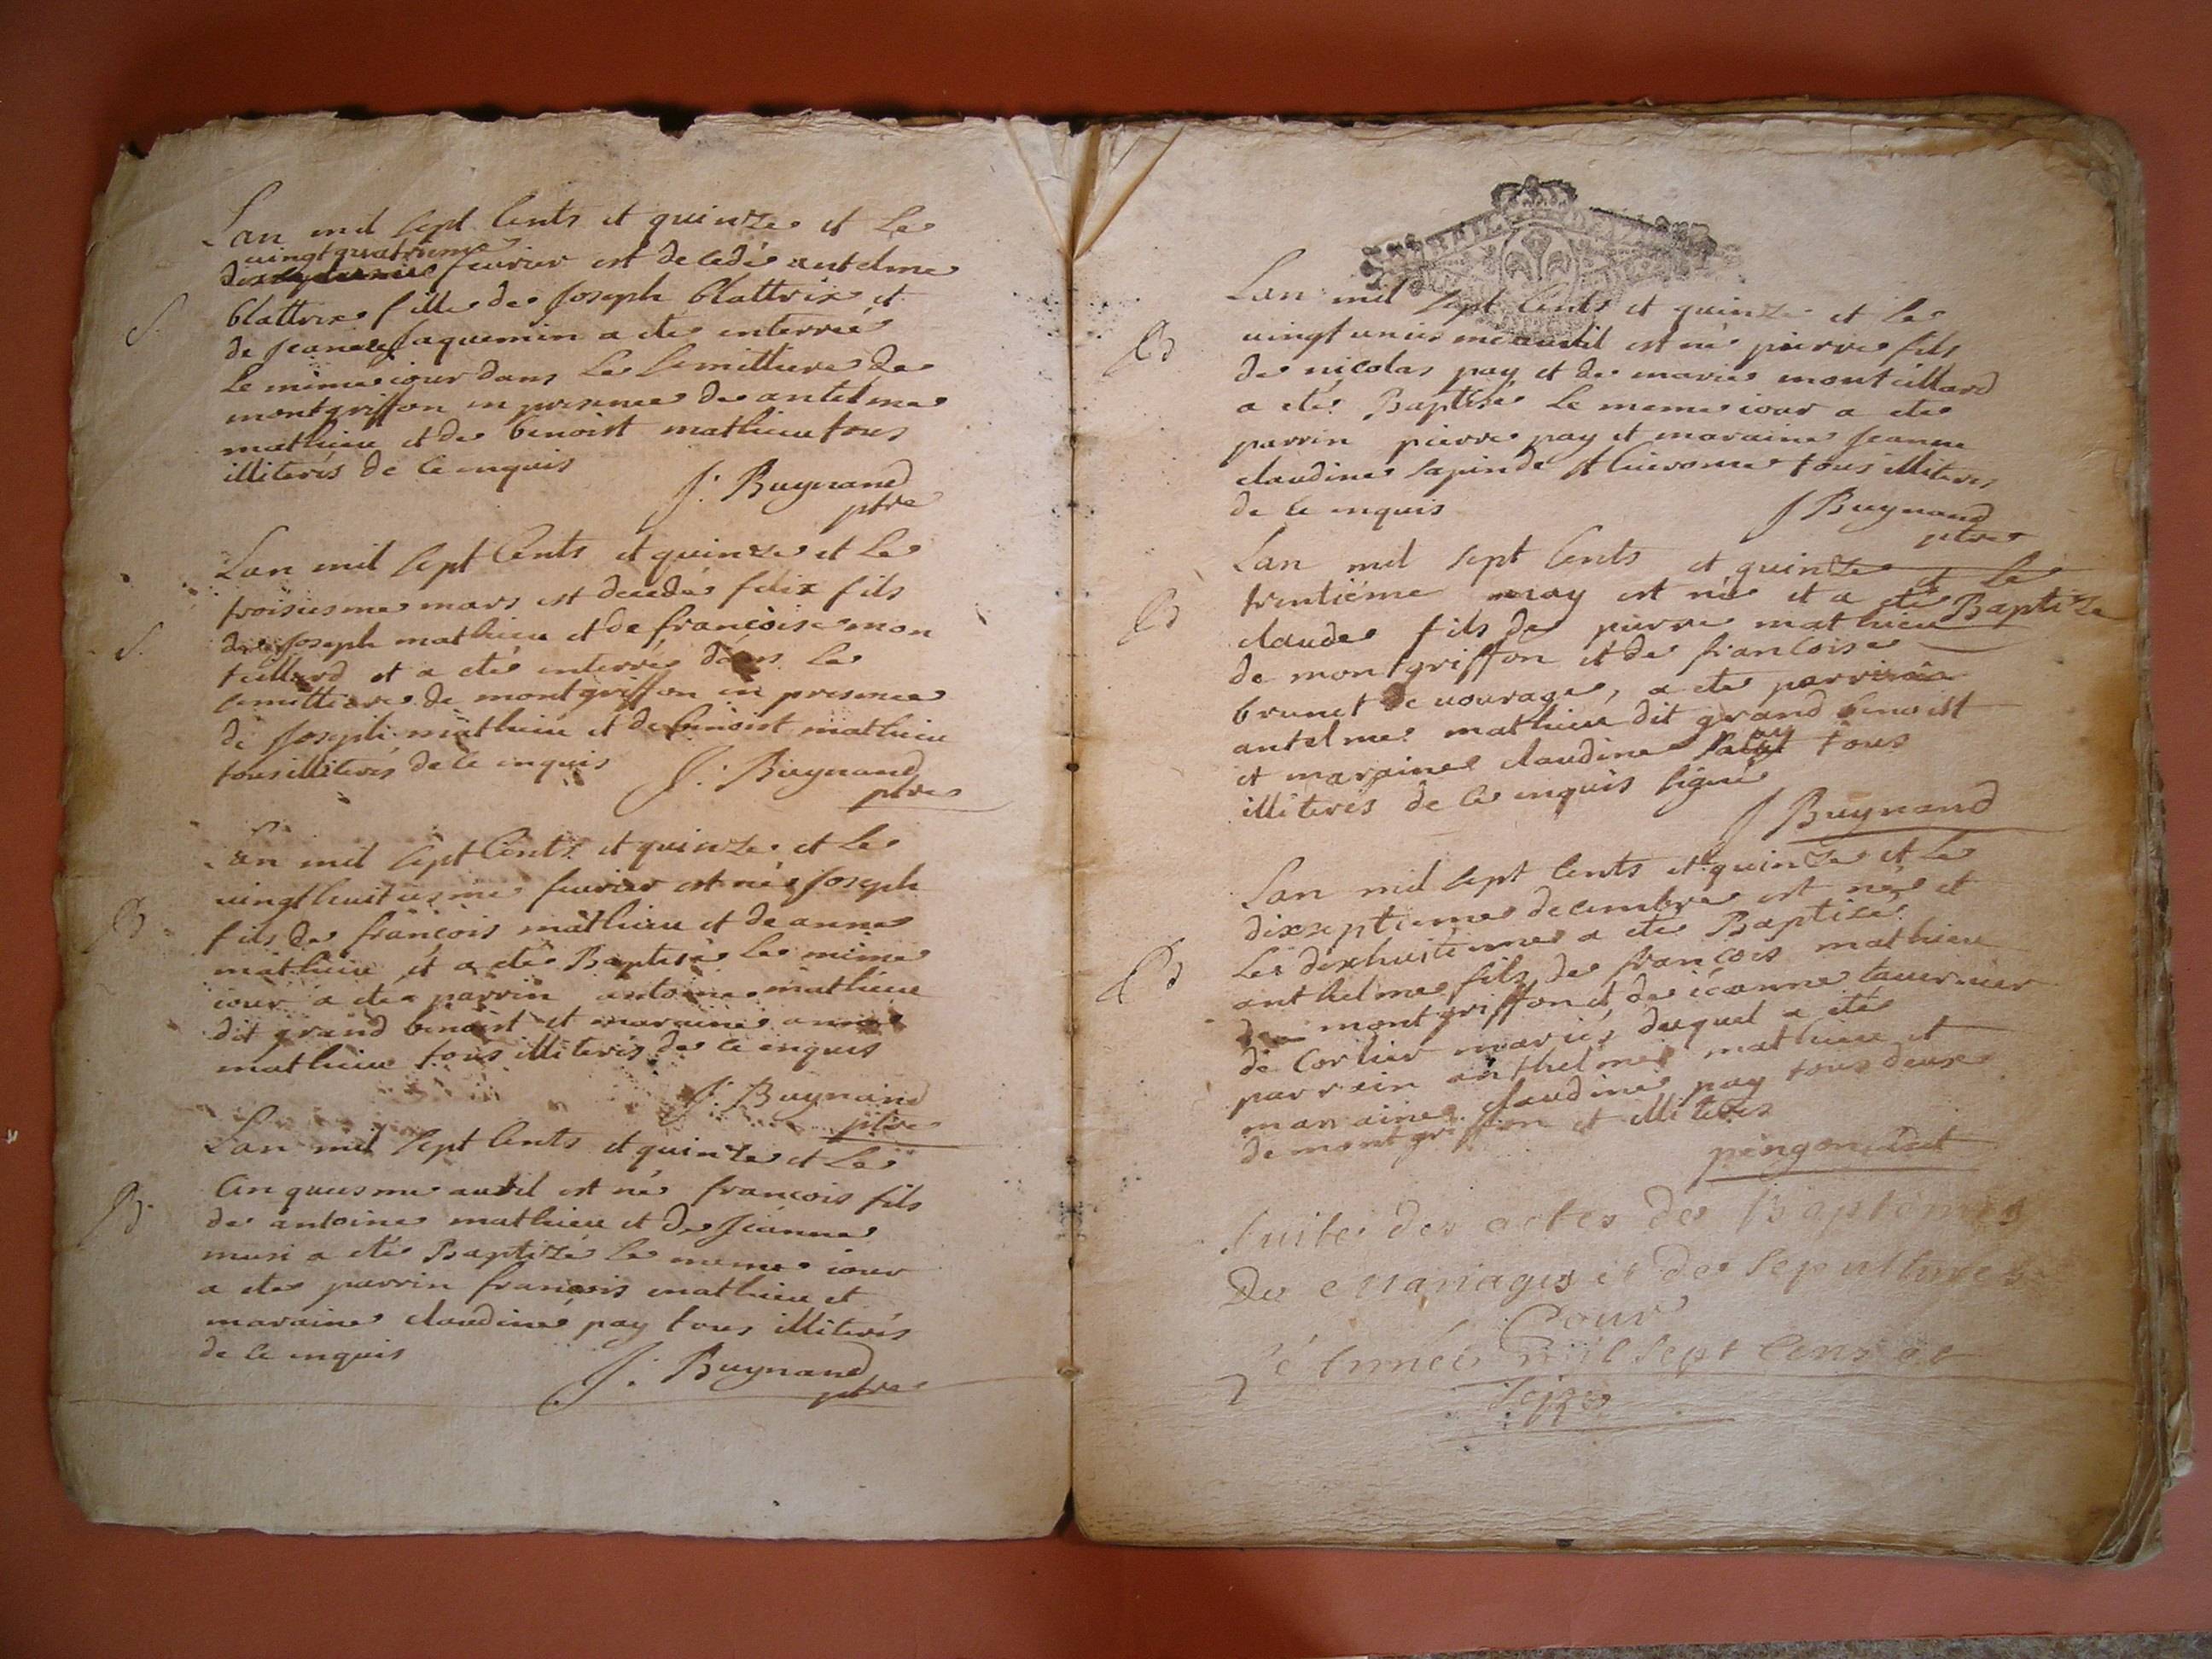 Lan mil sept Cents et quinze et le
vingtquatrieme
feurier est decedé antelme
blattrix fille de Joseph blattrix et
de Jeanne Jaquemin a ete interrée
le mime iour dans le semittiere de
montgriffon en presence de antelme
mathieu et de benoist mathieu tous
illiterés de ce enquis
J. Buynand
ptre
S.
Lan mil sept Cents et quinze et le
troisiesme mars est decede felix fils
de Joseph mathieu et de francoise mon
teillard et a eté interré dans le
semittiere de montgriffon en presence
de Joseph mathieu et de benoist mathieu
tous illiterés de ce enquis
J. Buynand
ptre
S.
Lan mil sept Cents et quinze et le
vingthuitiesme feurier est né Joseph
fils de francois mathieu et de anne
mathieu et a eté Baptisé le mime
iour a ete parrin antoine mathieu
dit grand benoist et maraine anne
mathieu tous illiterés de ce enquis
J. Buynand
ptre
B
Lan mil sept Cents et quinze et le
Cinquiesme auril est né francois fils
de antoine mathieu et de Jeanne
a eté Baptizé le meme iour
a ete parrin francois mathieu et
maraine claudine pay tous illiterés
de ce enquis
J. Buynand
ptre
B.
Lan mil sept Cents et quinze et le
auril est né pierre fils
de nicolas pay et de marie monteillard
a eté Baptisé le meme iour a ete
parrin pierre pay et maraine Jeanne
claudine tous illiteres
de ce enquis
J Buynand
ptre
B
Lan mil sept Cents et quinze et le
trentiéme may est né et a eté Baptize
claude fils de pierre mathieu
de montgriffon et de francoise
brunet de uourage, a ete parrin
antelme mathieu dit grand benoist
et maraine claudine tous
illiterés de ce enquis signé
J Buynand
B
Lan mil sept Cents et quinze et le
dixseptieme decembre est né et
Le dixhuitieme a ete Baptizé
anthelme fils de francois mathieu
de montgriffon et de ieanne tauernier
de Corlier mariés duquel a eté
parrein anthelme mathieu et
marraine claudine pay tous deux
de montgriffon et illiteres
B
Suite des actes de Baptemes
De Mariages et de Sepultures
Pour
L'année mil sept Cens et
Seize